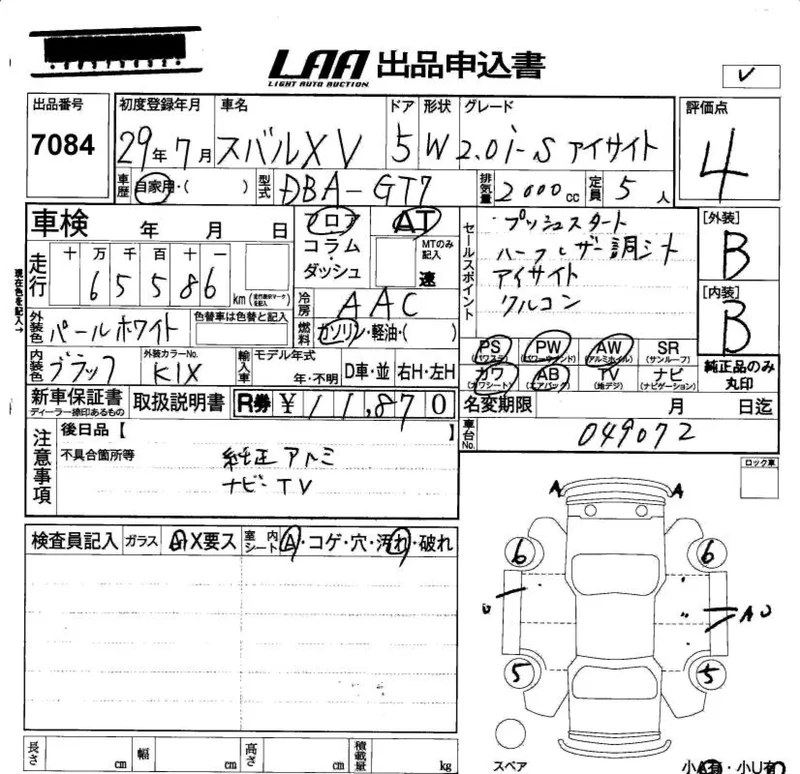 LAA 出品申込書
LIGHT AUTO AUCTION
出品番号 初度登録年月 車名 ドア 形状 グレード 評価点
7084 29年7月 スバルXV 5 W 2.0i-S アイサイト 4
車歴 自家用・( ) 型式 DBA-GT7 排気量 2000cc 定員 5人
車検 年 月 日 フロア コラム・ダッシュ AT MTのみ記入 速
セールスポイント プッシュスタート
ハーフレザー調シート
アイサイト
クルコン
[外装] B
[内装] B
現在色を記入→
走行 十 万 千 百 十 一
65586 km (走行距離マークを記入)
冷房 AAC
外装色 パールホワイト 色替車は色替と記入 燃料 ガソリン・軽油・( )
PS (パワステ) PW (パワーウインド) AW (アルミホイル) SR (サンルーフ)
カワ (カワシート) AB (エアバック) TV (地デジ) ナビ (ナビゲーション)
純正品のみ丸印
内装色 ブラック 外装カラーNo. K1X 輸入車 モデル年式 年・不明 D車・並 右H・左H
新車保証書 ディーラー捺印あるもの 取扱説明書 R券 ¥11,870
名変期限 月 日迄
車台No. 049072
注意事項 後日品【 】
不具合箇所等 純正アルミ
ナビ・TV
ロック車
検査員記入 ガラス A X要ス 室内シート A・コゲ・穴・汚れ・破れ
A A
6 6
U A U
5 5
長さ cm 幅 cm 高さ cm 積載量 kg
スペア 小A有・小U有